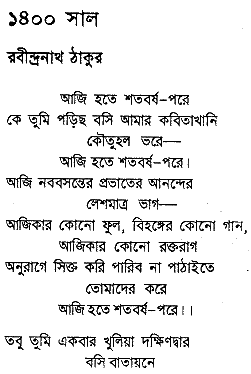 ১৪০০ সাল
রবীন্দ্রনাথ ঠাকুর
আজি হতে শতবর্ষ-পরে
কে তুমি পড়িছ বসি আমার কবিতাখানি
কৌতুহল ভরে—
আজি হতে শতবর্ষ-পরে।
আজি নববসন্তের প্রভাতের আনন্দের
লেশমাত্র ভাগ—
আজিকার কোনো ফুল, বিহঙ্গের কোনো গান,
আজিকার কোনো রক্তরাগ
অনুরাগে সিক্ত করি পারিব না পাঠাইতে
তোমাদের করে
আজি হতে শতবর্ষ-পরে।।
তবু তুমি একবার খুলিয়া দক্ষিণদ্বার
বসি বাতায়নে